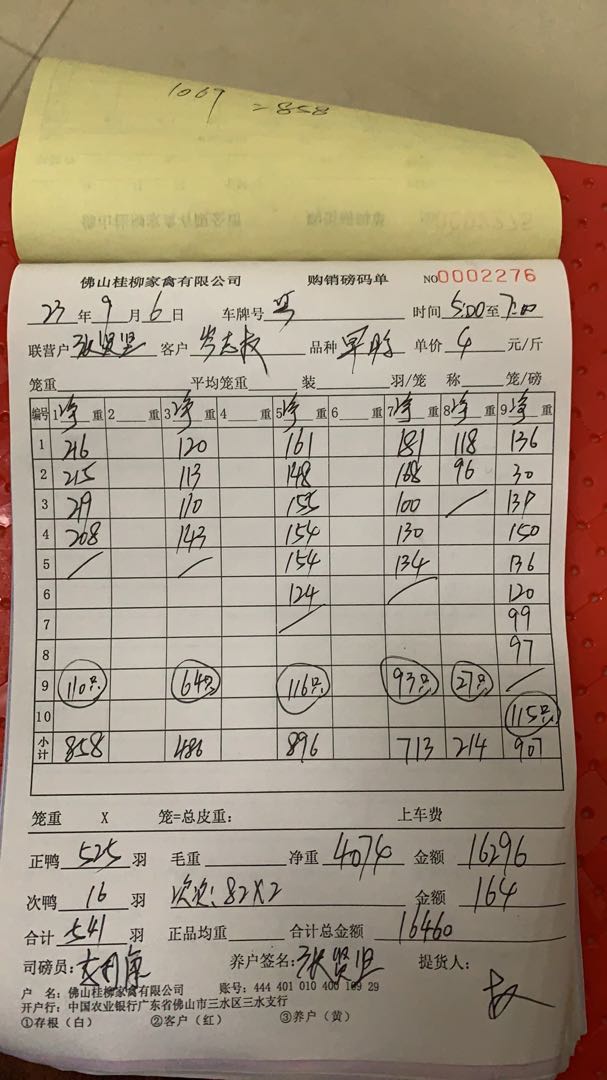 1067 = 858
佛山桂柳家禽有限公司 购销磅码单 NO0002276
23年9月6日 车牌号 时间5:00至7:00
联营户张贤坚 客户岑志权 品种 单价4元/斤
笼重 平均笼重 装 羽/笼 称 笼/磅
编号 1净重 2重 3净重 4重 5净重 6重 7净重 8净重 9净重
1 216 120 161 181 118 136
2 215 113 148 168 96 30
3 219 110 155 100 / 139
4 208 143 154 130 150
5 / / 154 134 136
6 124 / 120
7 / 99
8 97
9 110只 64只 116只 93只 27只 /
10 115只
小计 858 486 896 713 214 907
笼重 X 笼=总皮重: 上车费
正鸭525羽 毛重 净重4074 金额16296
次鸭16羽 次: 82X2 金额164
合计541羽 正品均重 合计总金额16460
司磅员: 养户签名:张贤坚 提货人:
户 名:佛山桂柳家禽有限公司 账号:444 401 010 400 109 29
开户行:中国农业银行广东省佛山市三水区三水支行
①存根(白) ②客户(红) ③养户(黄)